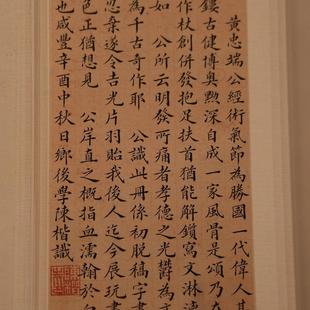 黃忠端公經術氣節為勝國一代偉人其
鏤古健博奧黝深自成一家風骨是頌乃在
作杖創併發抱足扶首猶能解鎖寫文淋
如 公所云明發所痛者孝德之光欝為文
為千古奇作耶 公識此冊係初脫稿字畫
忍棄遂令吉光片羽貽我後人迄今展玩書
色正猶想見 公岸直之概指血濡翰於
也咸豐辛酉中秋日鄉後學陳楷識